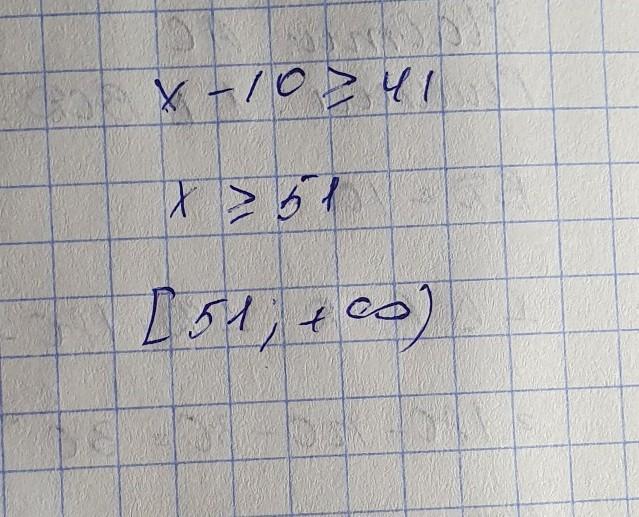 x - 10 ≥ 41
x ≥ 51
[51; +∞)